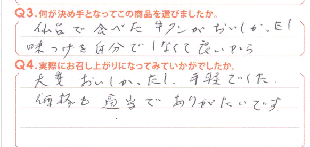 Q3.何が決め手となってこの商品を選びましたか。
仙台で食べた牛タンがおいしかった
味つけを自分でしなくて良いから
Q4.実際にお召し上がりになってみていかがでしたか。
大変おいしかった!手軽でした。
価格も適当でありがたいです